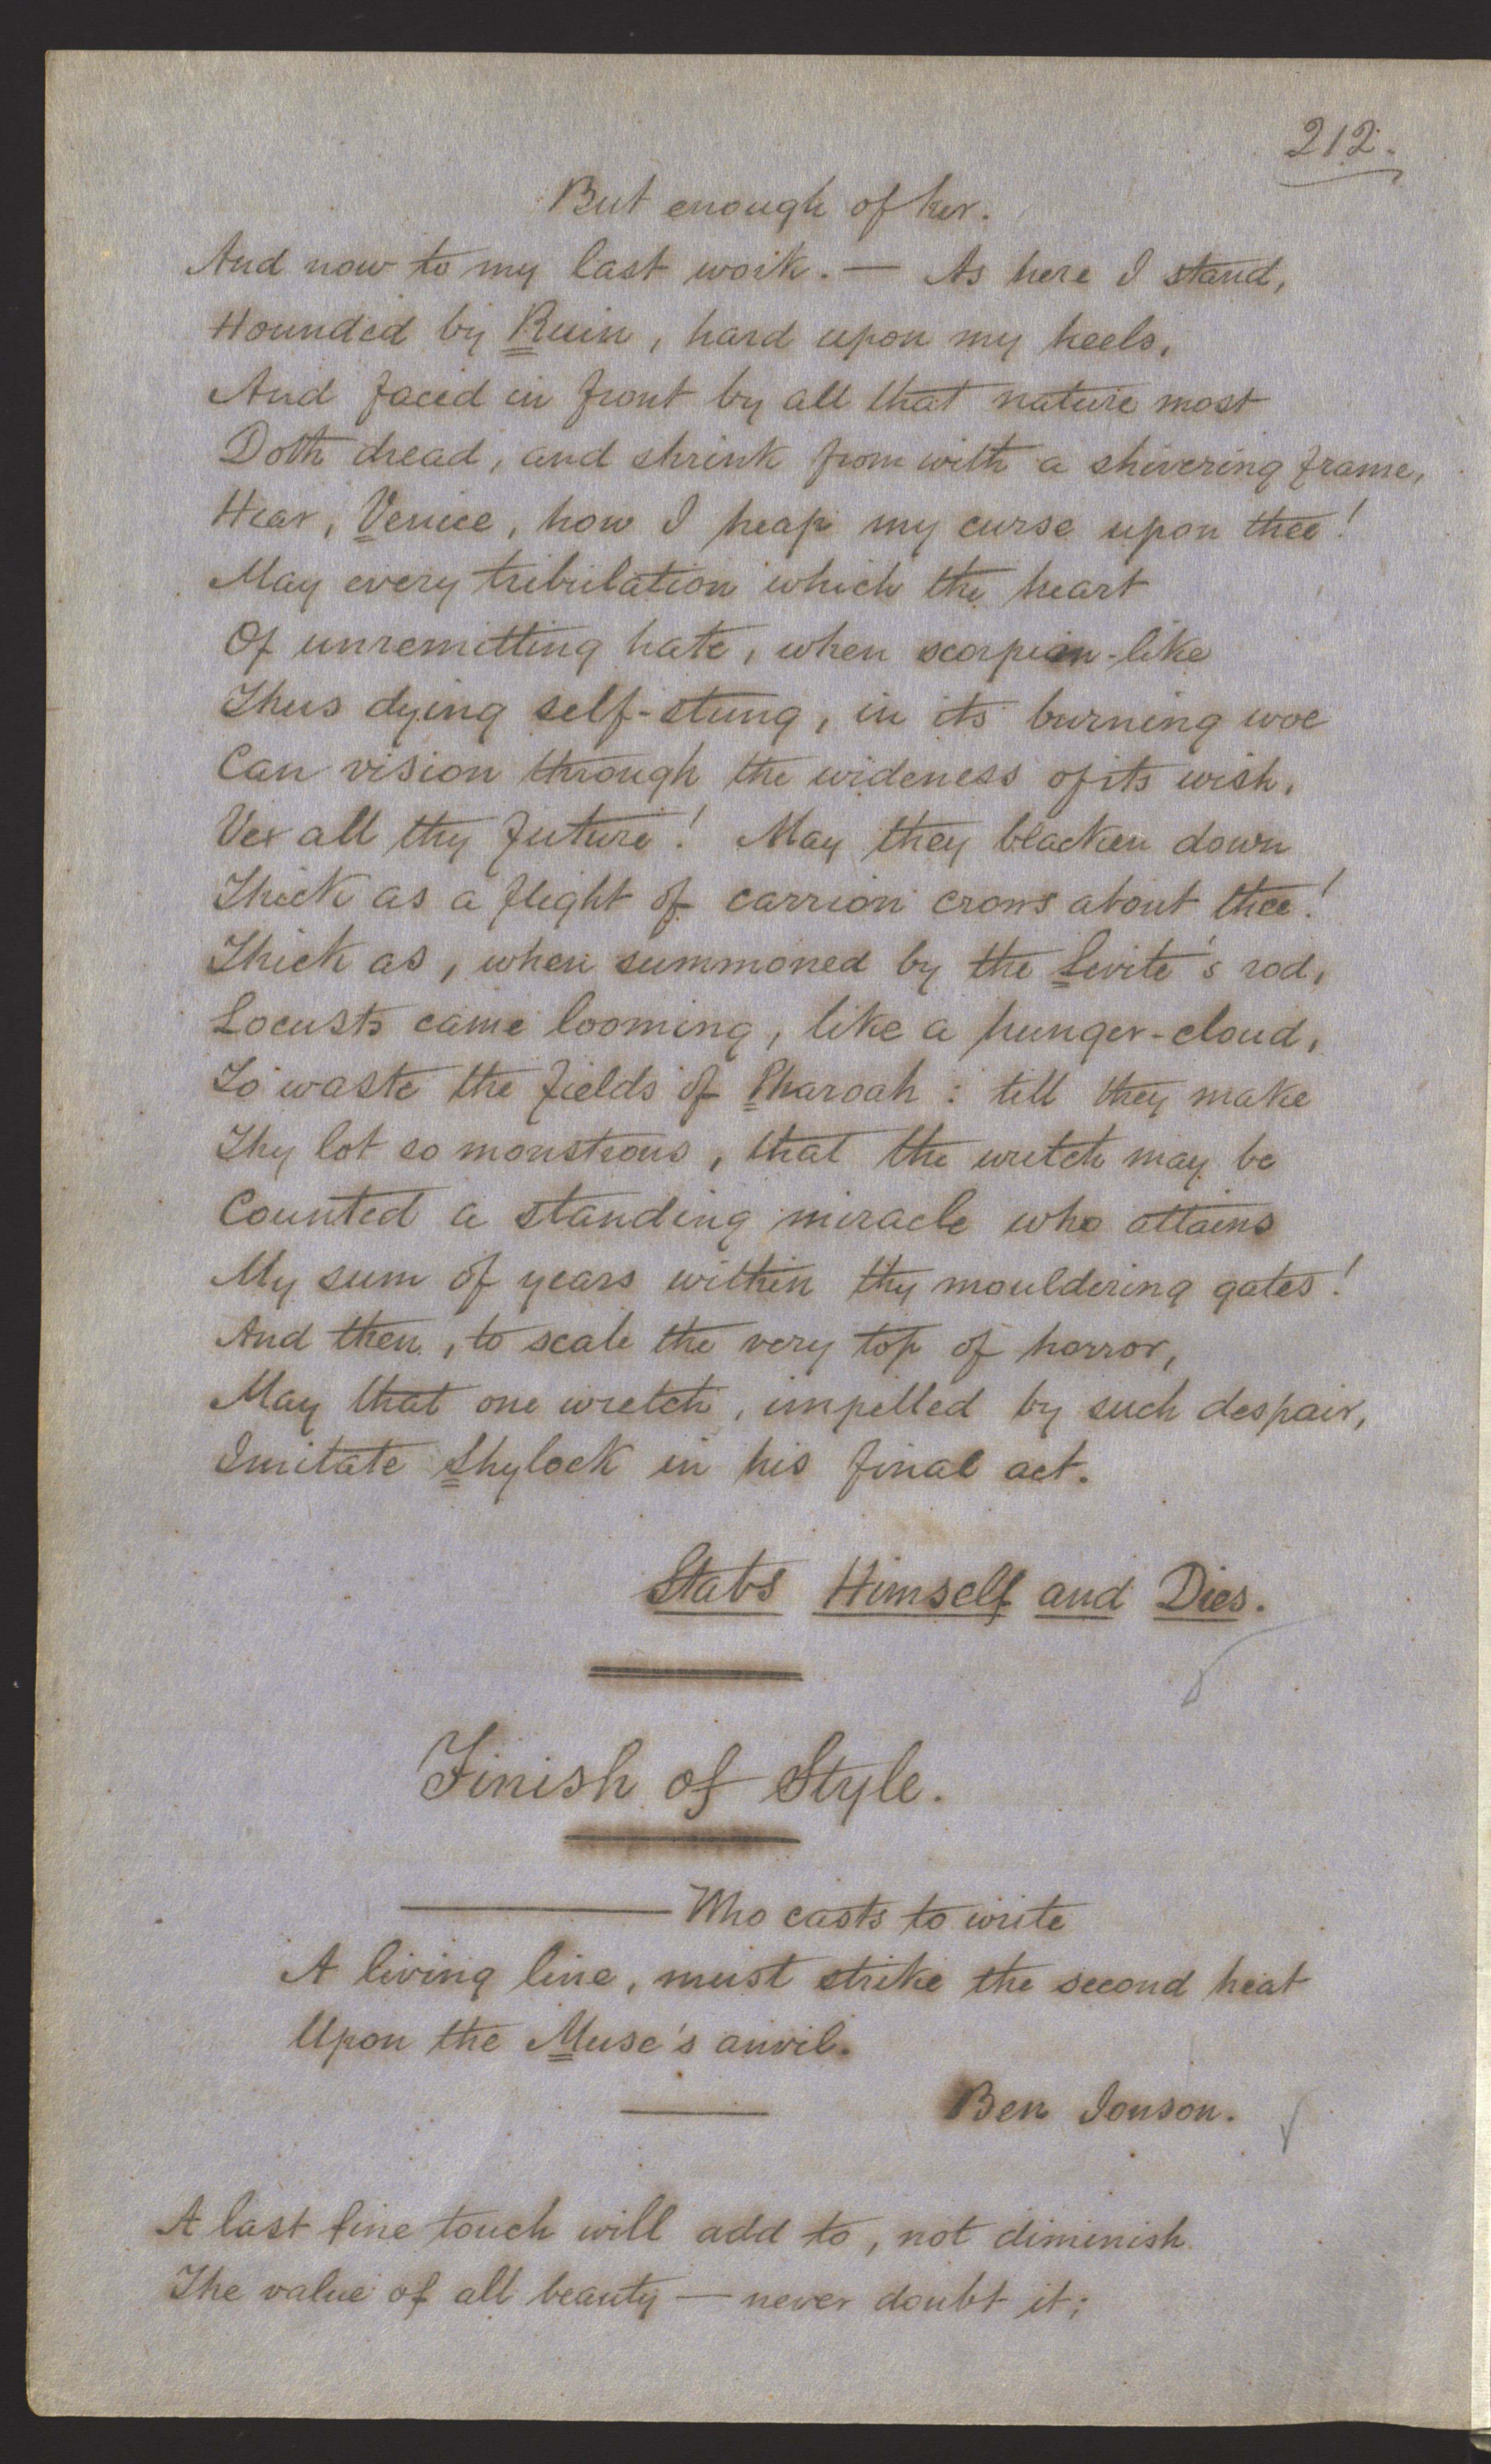 212.
But enough of her.
And now to my last work. — As here I stand,
Hounded by Ruin, hard upon my heels,
And faced in front by all that nature most
Doth dread, and shrink from with a shivering frame,
Hear, Venice, how I heap my curse upon thee!
May every tribulation which the heart
Of unremitting hate, when scorpion-like
Thus dying self-stung, in its burning woe
Can vision through the wideness of its wish,
Vex all thy future! May they blacken down
Thick as a flight of carrion crows about thee!
Thick as, when summoned by the Levite's rod,
Locusts came looming, like a hunger-cloud,
To waste the fields of Pharoah: till they make
Thy lot so monstrous, that the wretch may be
Counted a standing miracle who attains
My sum of years within thy mouldering gates!
And then, to scale the very top of horror,
May that one wretch, impelled by such despair,
Imitate Shylock in his final act.
Stabs Himself and Dies.
Finish of Style.
Who casts to write
A living line, must strike the second heat
Upon the Muse's anvil.
Ben Jonson.
A last fine touch will add to, not diminish
The value of all beauty — never doubt it;